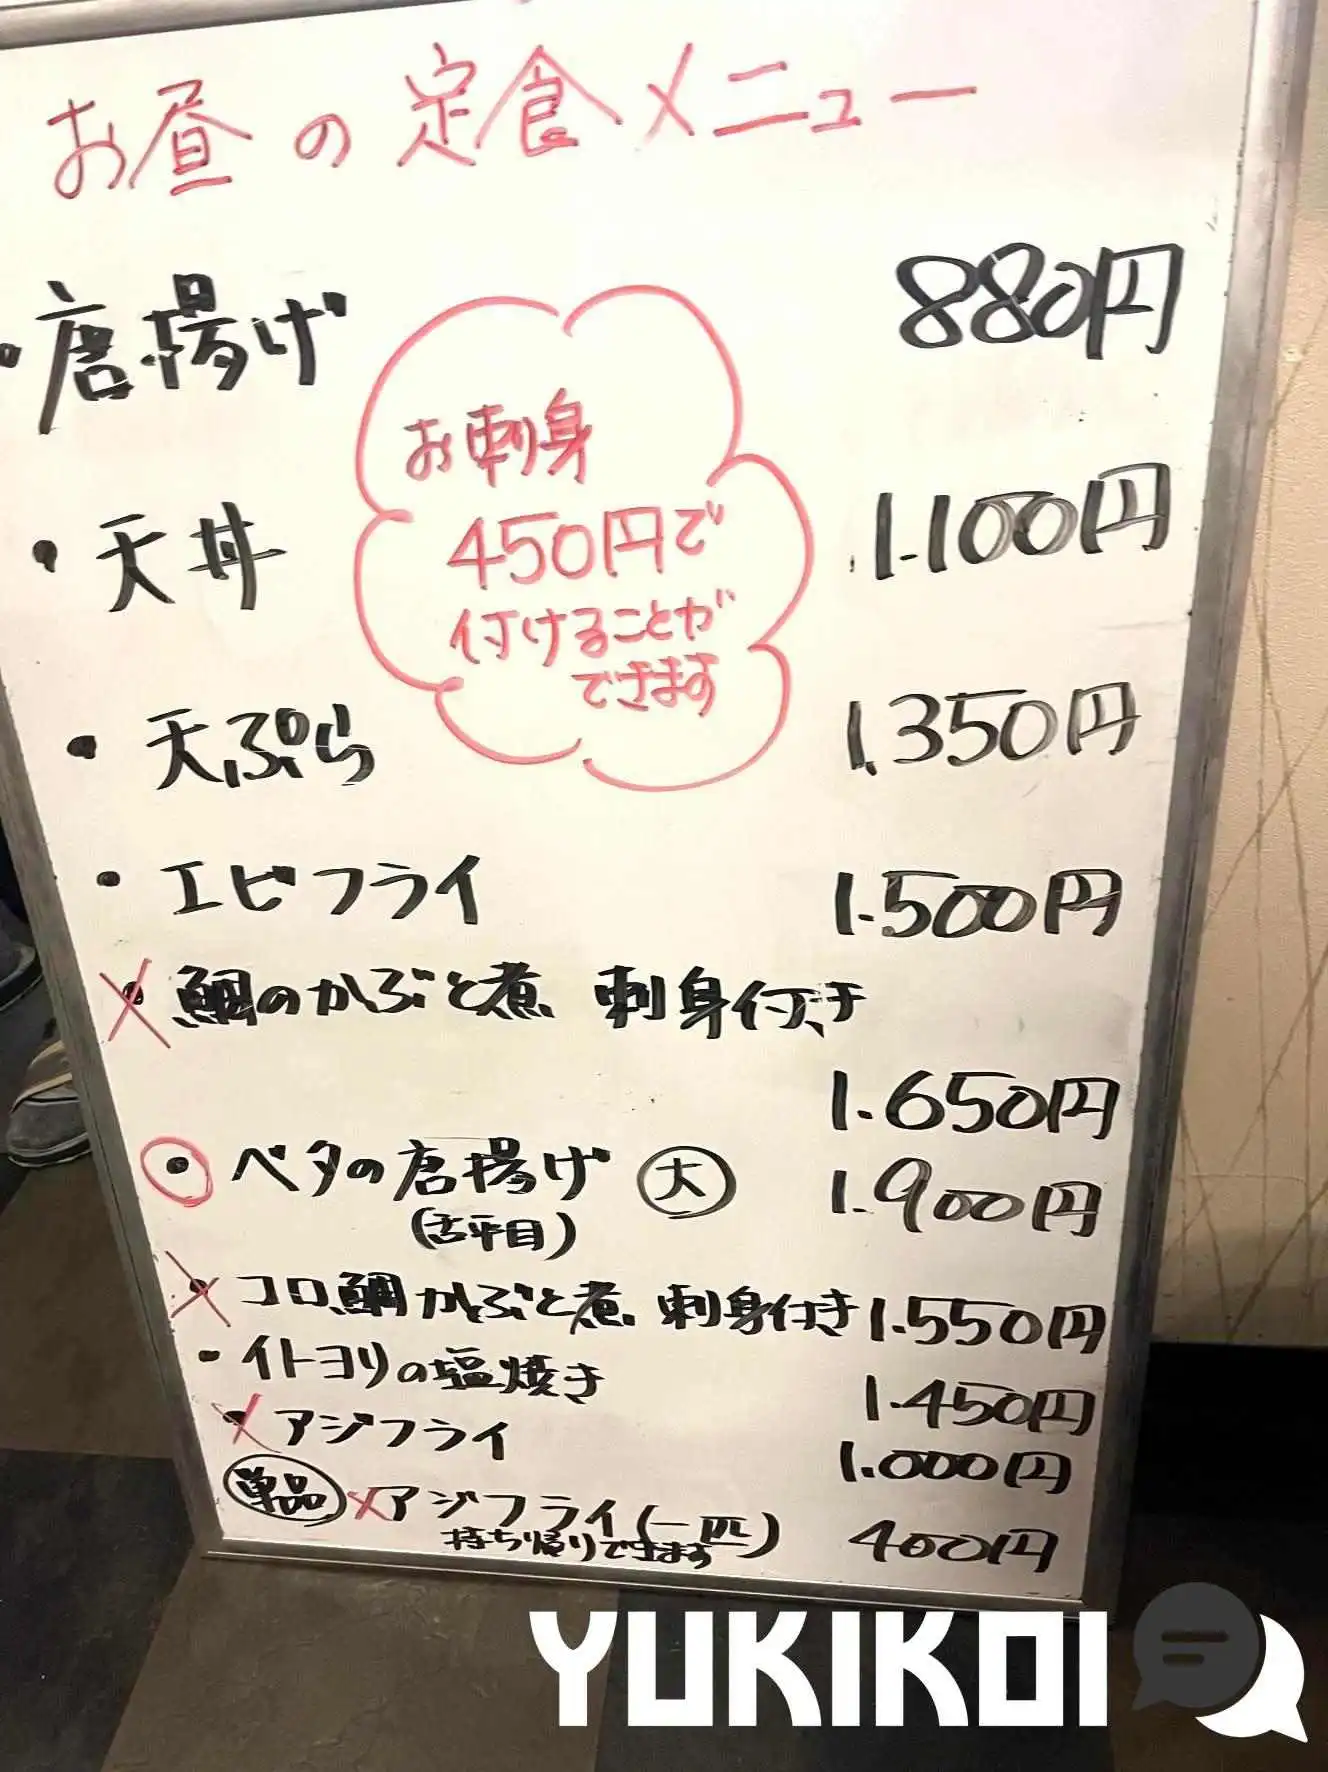 お昼の定食メニュー
・唐揚げ 880円
お刺身
450円で
付けることが
できます
・天丼 1.100円
・天ぷら 1.350円
・エビフライ 1.500円
×鯛のかぶと煮 刺身付き
1.650円
・ベタの唐揚げ 大 1.900円
(舌平目)
×コロ鯛かぶと煮 刺身付き 1.550円
・イトヨリの塩焼き 1.450円
×アジフライ 1.000円
単品 ×アジフライ(一匹) 400円
持ち帰りできます
YUKIKOI